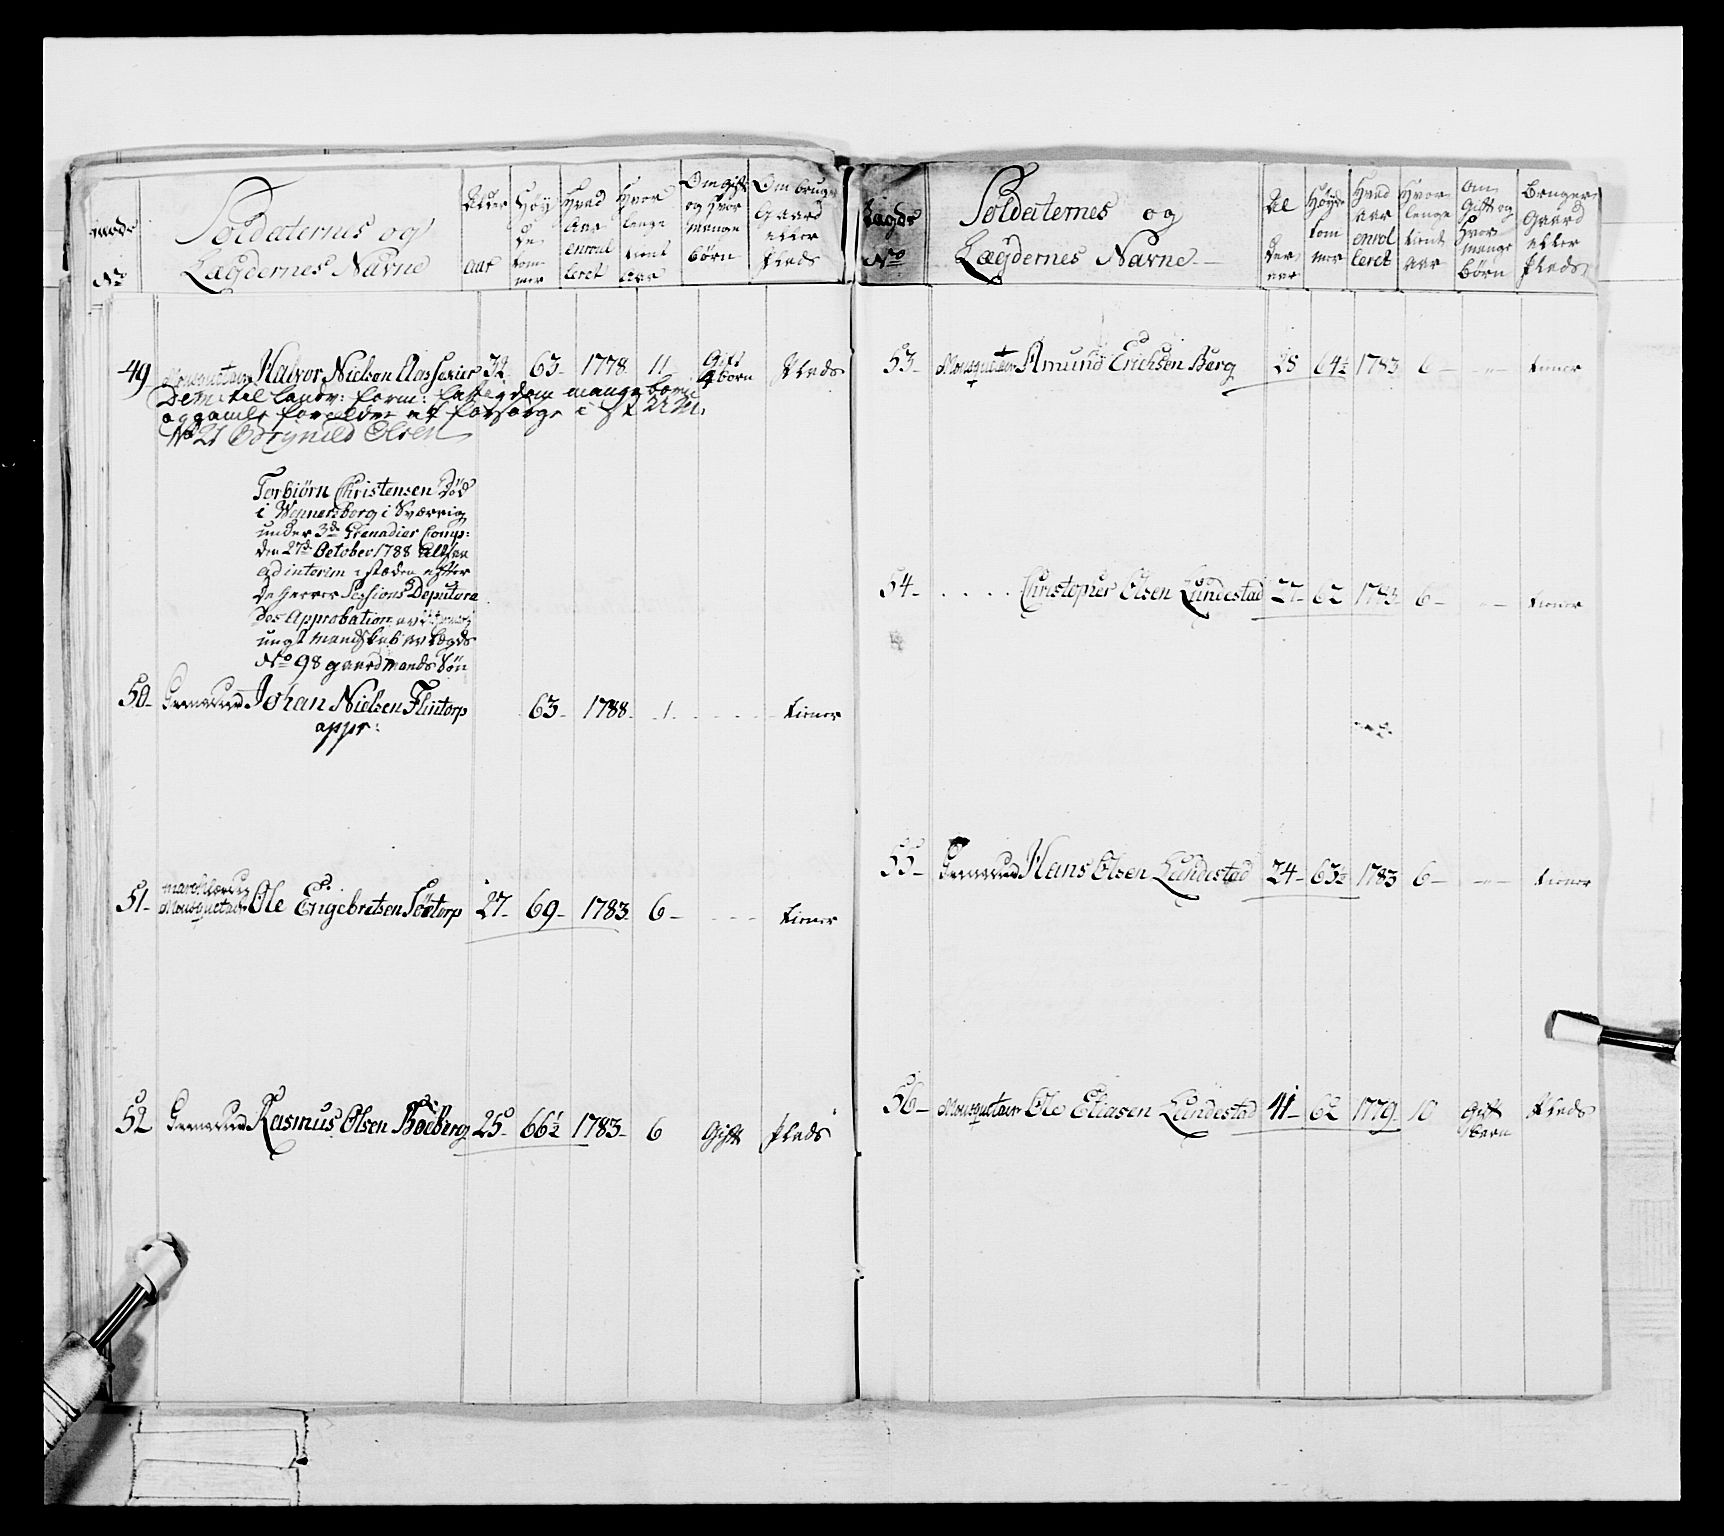 No
Soldaternes og
Lægdernes Navne
Alder
aar
Høy
de
tom
mer
Hvad
Aar
enroul
leret
Hvor
lenge
tient
Om gift
og Hvor
mange
børn
Om bruger
Gaard
eller
Plads
49 Mousqueteer Halvor Nielsen 32 63 1778 11 Gift 4 børn Plads
Demit: til landv: form: fattigdom mange børn
og gamle forældre at forsørge i
No 21 Brynild Olsen
Torbiørn Christensen Død
i Wennersborg i Sværrig
under 3de Grenadier Comp:
den 27de October 1788
ad interim i stæden efter
De Herrer Sessions Deputere
des Approbation
ungt mandskab Lægds
No 98 gaardmands Søn
50 Johan Nielsen Flintorp 63 1788 1 tiener
appr:
51 Mousqueteer Ole Engebretsen 27 69 1783 6 tiener
52 Rasmus Olsen 25 66½ 1783 6 Gift Plads
Lægds
No
Soldaternes og
Lægdernes Navne
Al
der
aar
Høyde
tom
mer
Hvad
aar
enrol
leret
Hvor
lenge
tient
aar
om
Gift og
Hvor
mange
børn
Bruger
Gaard
eller
Plads
53 Mousqueteer Amund Erichsen Berg 28 64½ 1783 6 tiener
54 Christopher Olsen Lundestad 27 62 1783 6 tiener
55 Hans Olsen Lundestad 24 63½ 1783 6 tiener
56 Mousqueteer Ole Eliasen Lundestad 41 62 1779 10 Gift børn Plads